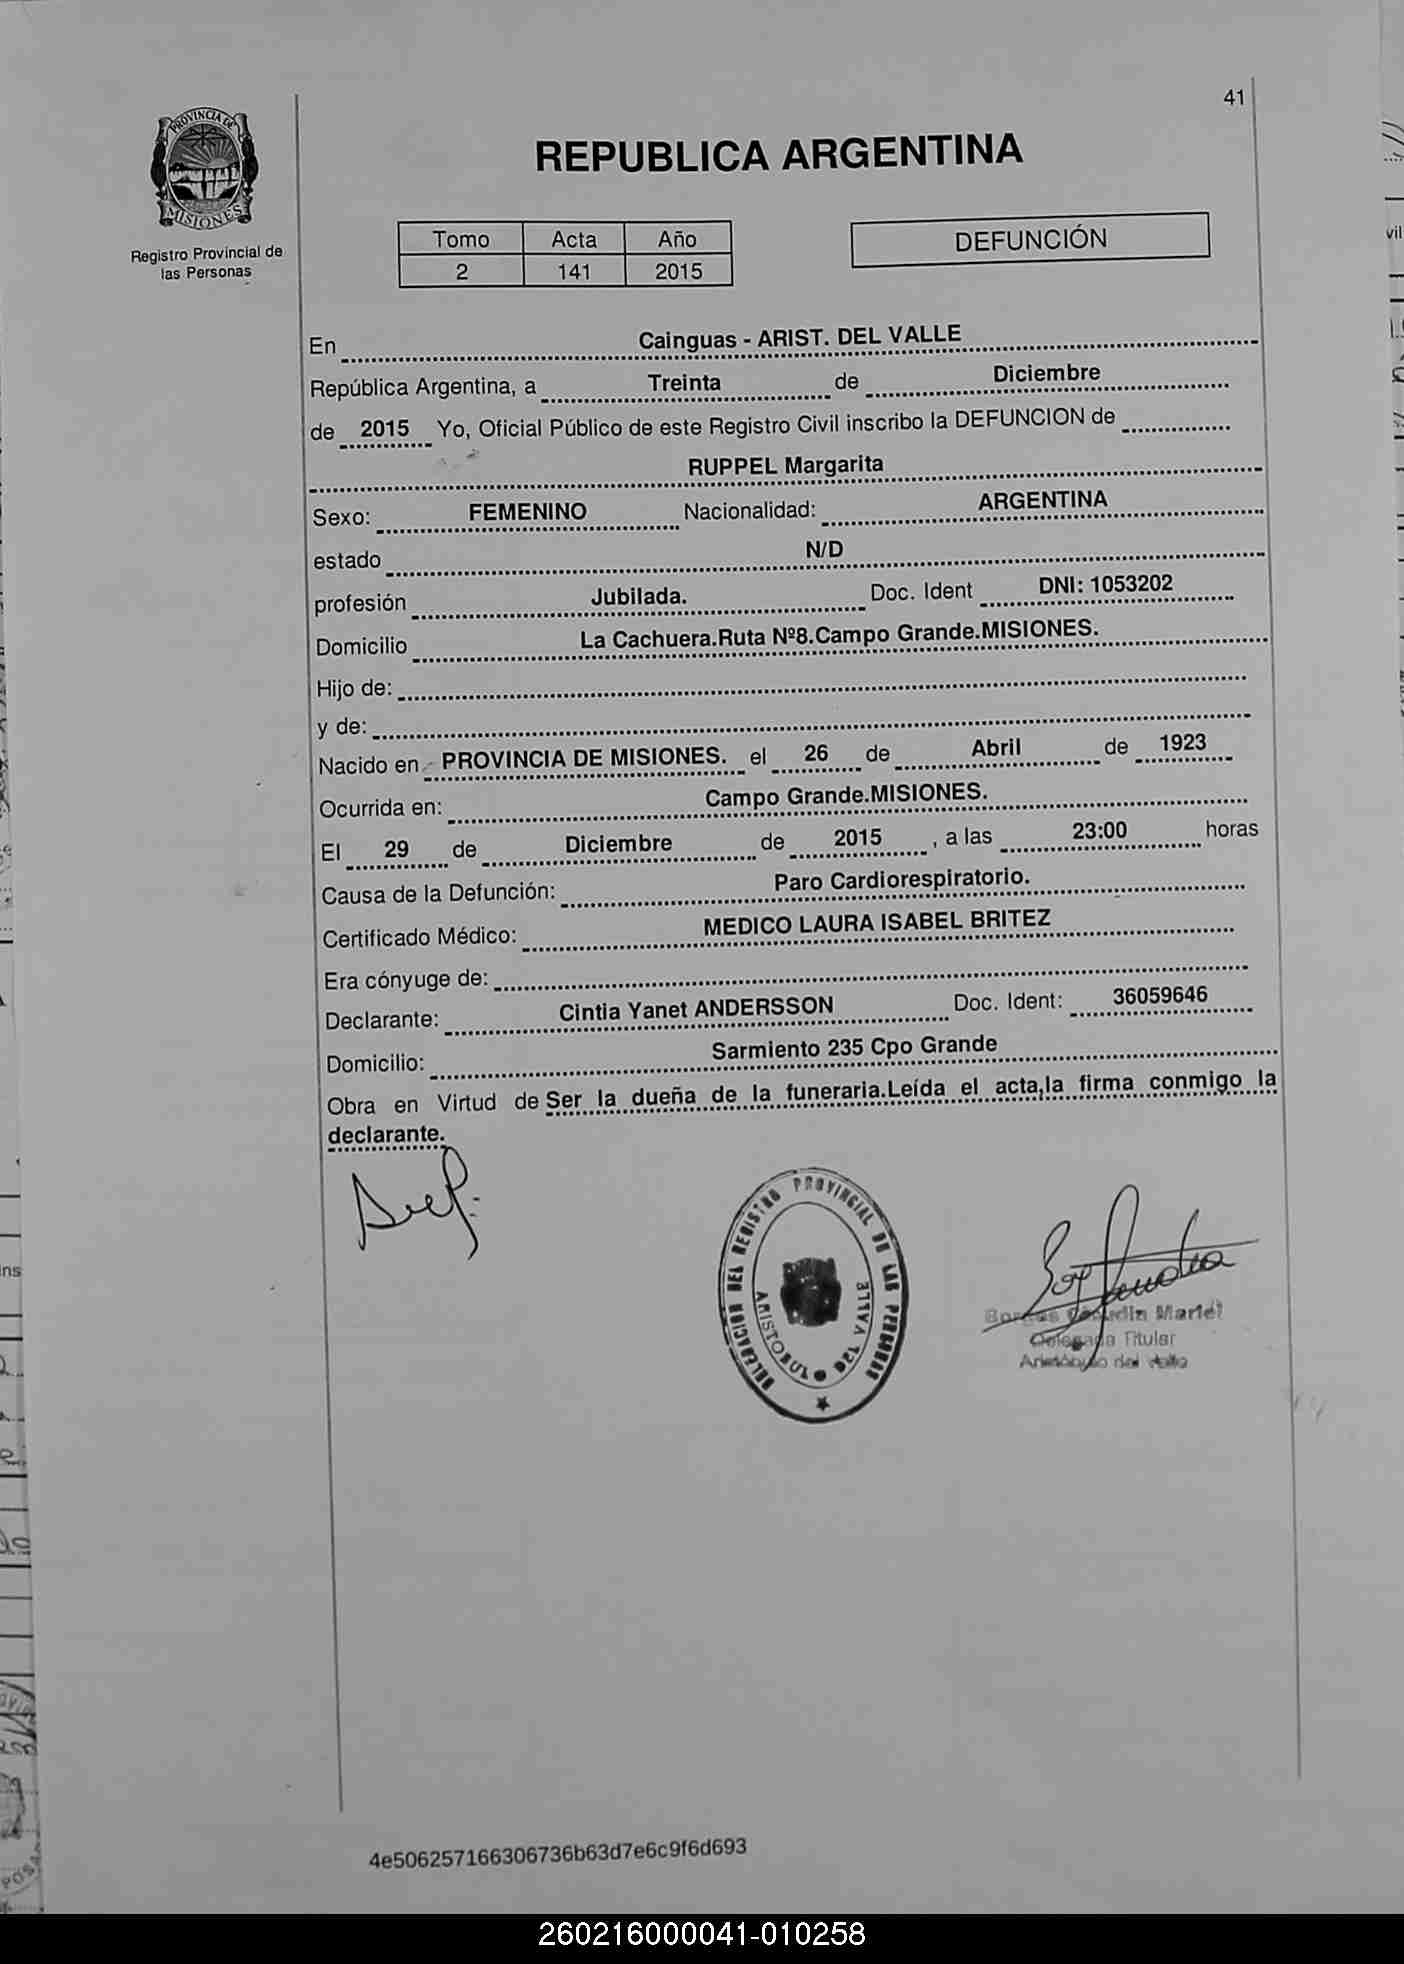 41
PROVINCIA DE
MISIONES
Registro Provincial de
las Personas
REPUBLICA ARGENTINA
Tomo Acta Año
2 141 2015
DEFUNCIÓN
En Cainguas - ARIST. DEL VALLE
República Argentina, a Treinta de Diciembre
de 2015 Yo, Oficial Público de este Registro Civil inscribo la DEFUNCION de
RUPPEL Margarita
Sexo: FEMENINO Nacionalidad: ARGENTINA
estado N/D
profesión Jubilada. Doc. Ident DNI: 1053202
Domicilio La Cachuera.Ruta Nº8.Campo Grande.MISIONES.
Hijo de:
y de:
Nacido en PROVINCIA DE MISIONES. el 26 de Abril de 1923
Ocurrida en: Campo Grande.MISIONES.
El 29 de Diciembre de 2015 , a las 23:00 horas
Causa de la Defunción: Paro Cardiorespiratorio.
Certificado Médico: MEDICO LAURA ISABEL BRITEZ
Era cónyuge de:
Declarante: Cintia Yanet ANDERSSON Doc. Ident: 36059646
Domicilio: Sarmiento 235 Cpo Grande
Obra en Virtud de Ser la dueña de la funeraria.Leída el acta,la firma conmigo la
declarante.
DELEGACION DEL REGISTRO PROVINCIAL DE LAS PERSONAS
ARISTOBULO DEL VALLE
Mariel
Delegada Titular
Aristóbulo del Valle
4e506257166306736b63d7e6c9f6d693
260216000041-010258